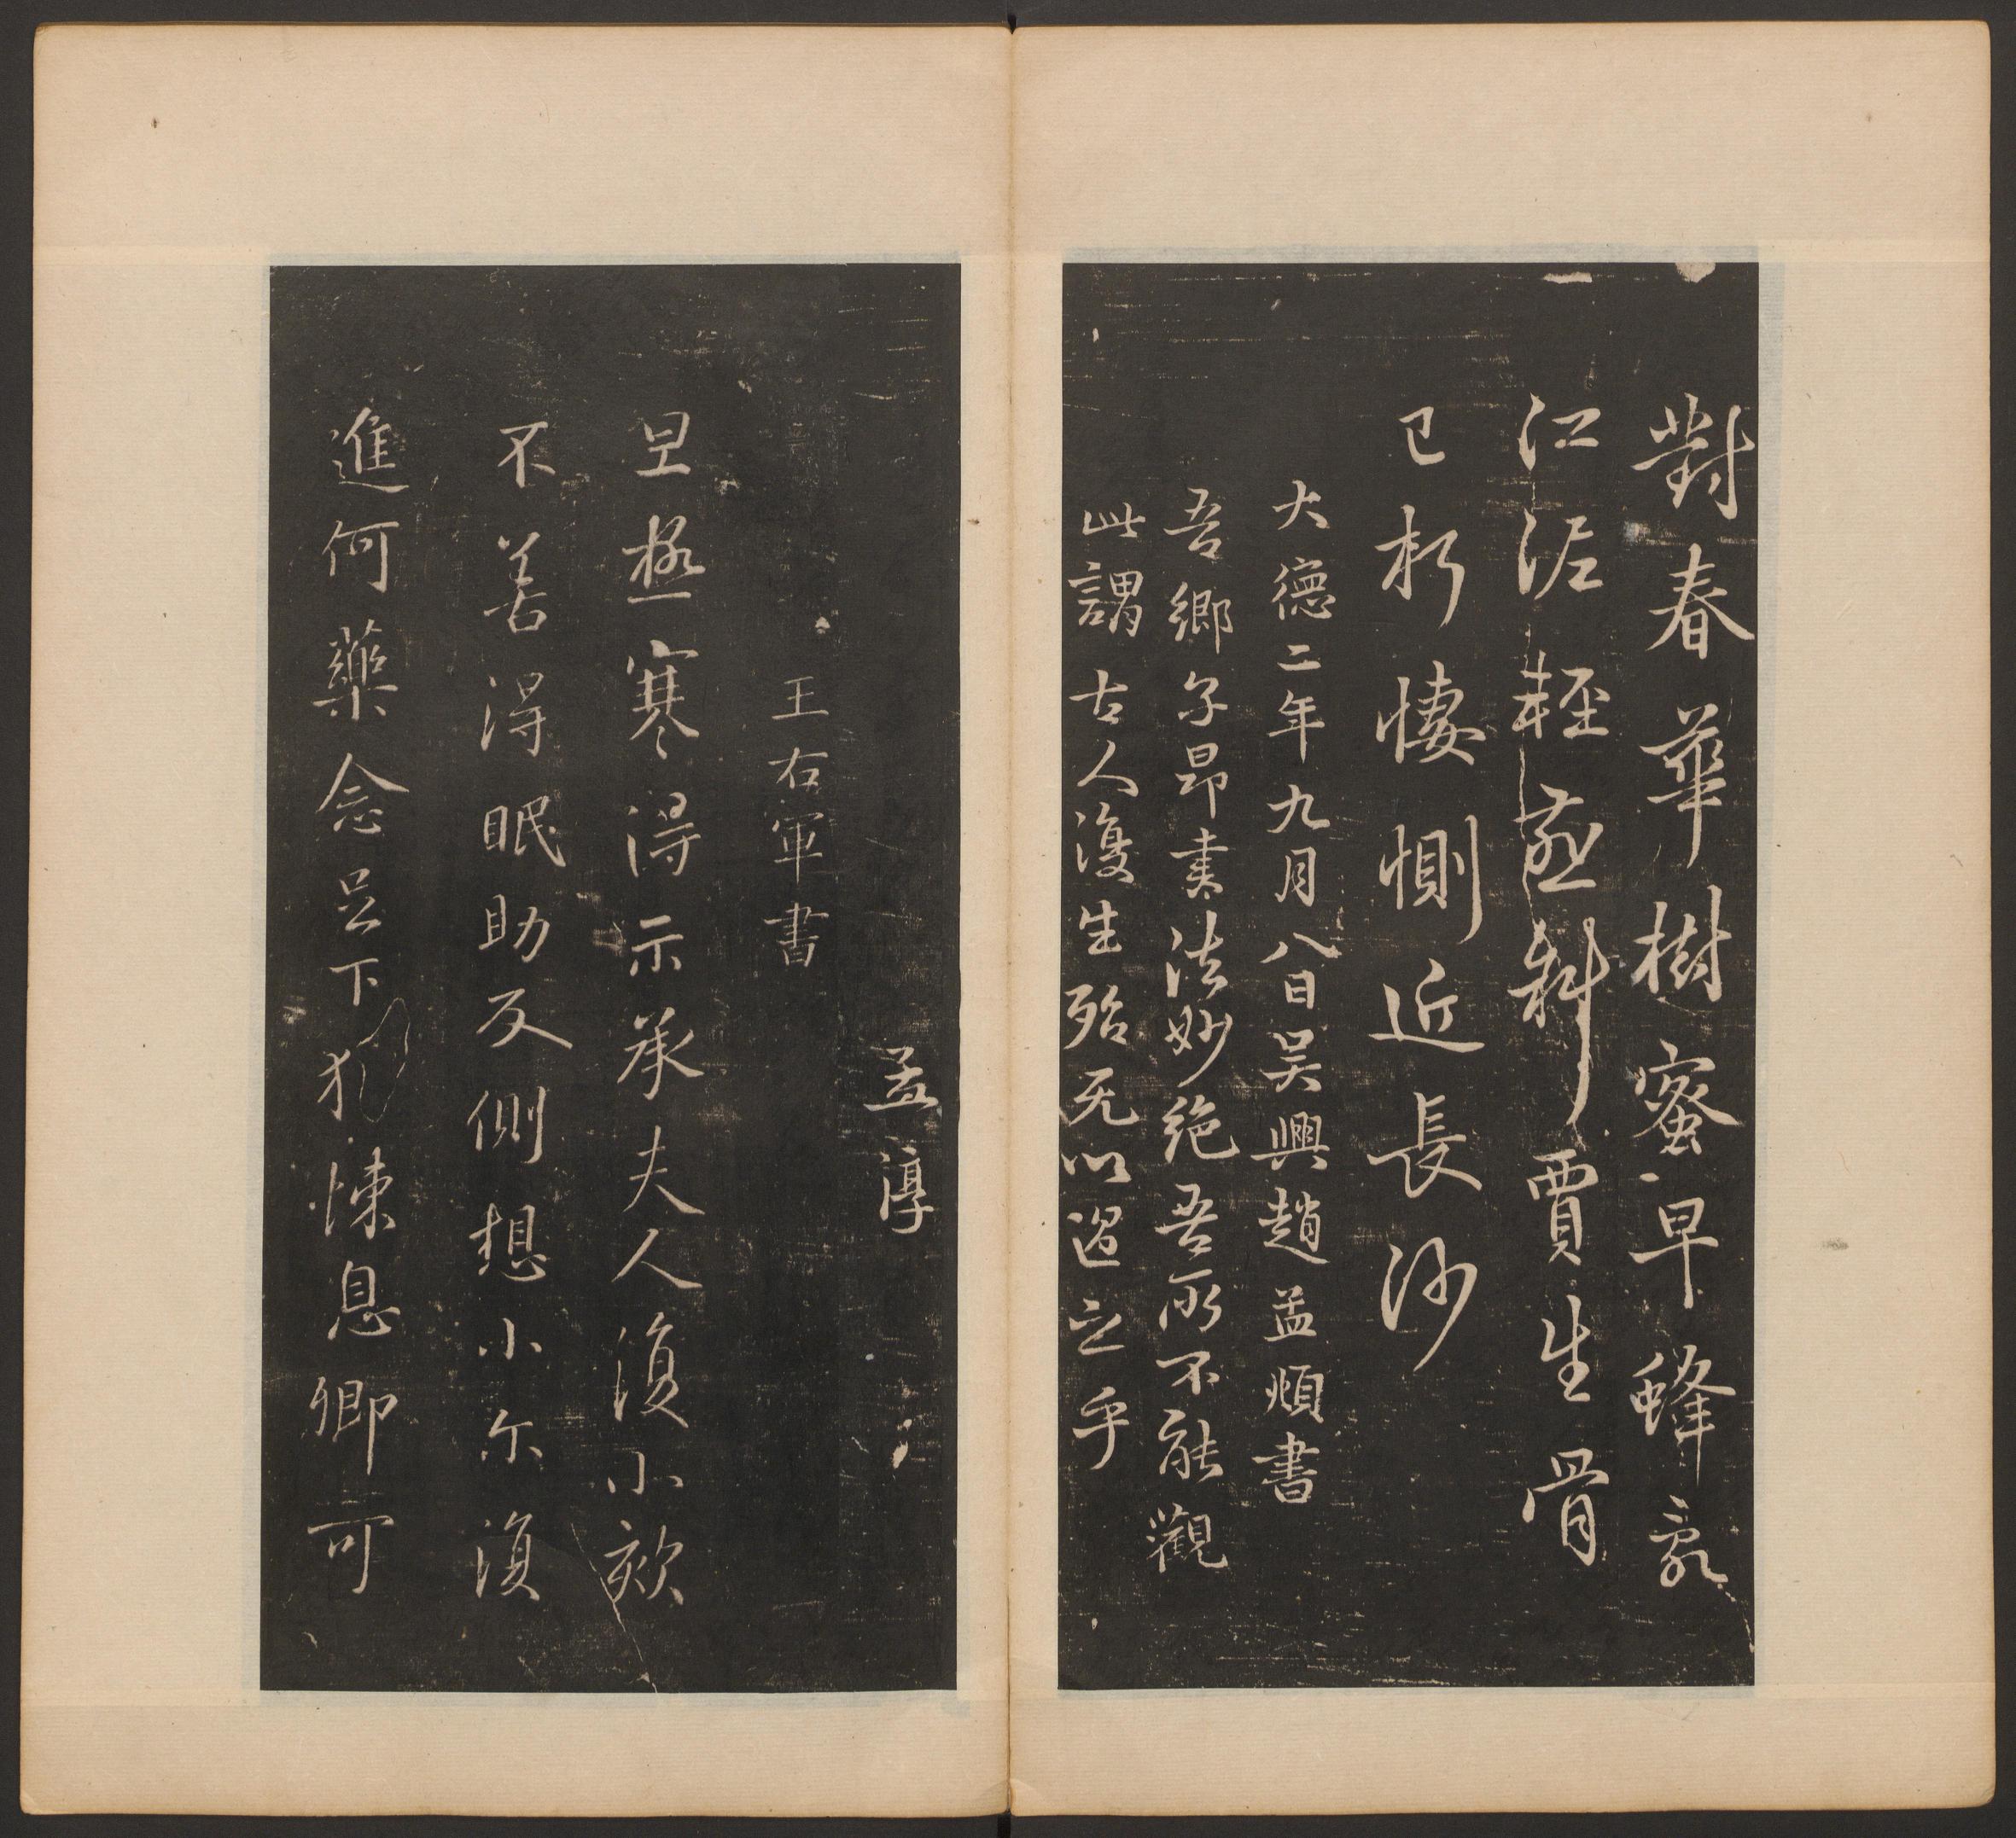 對春華樹蜜早蜂亂
江泥輕燕斜賈生骨
已朽悽惻近長沙
大德二年九月八日吴興趙孟頫書
吾鄉子昂書法妙絶吾所不能觀
此謂古人復生殆无以過之乎
孟淳
王右軍書
旦極寒得示承夫人復小欬
不善得眠助反側想小尔復
進何藥念足下犹悚息卿可